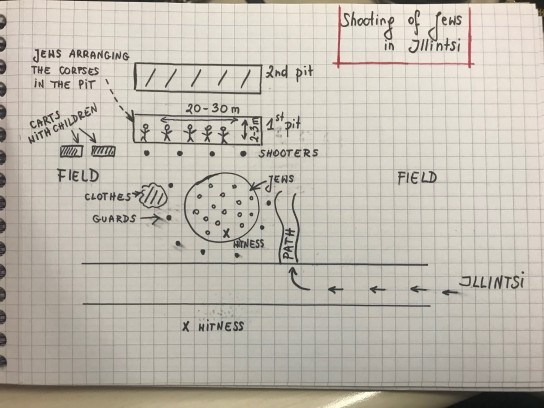 Shooting of Jews
in Illintsi
JEWS ARRANGING
THE CORPSES
IN THE PIT
2nd pit
20-30 m
1st pit
2-3 m
CARTS
WITH CHILDREN
SHOOTERS
FIELD
JEWS
FIELD
CLOTHES
GUARDS
X WITNESS
PATH
ILLINTSI
X WITNESS